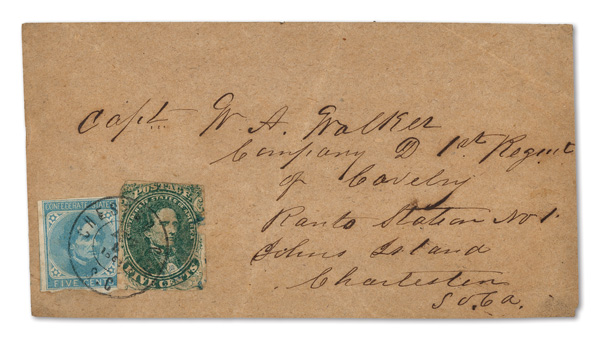 Capt W. A. Walker
Company D 1st Regmt
of Cavelry
Ranto Station No 1.
Johns Island
Charleston
So. Ca.
CONFEDERATE STATES
FIVE CENTS
FIVE CENTS